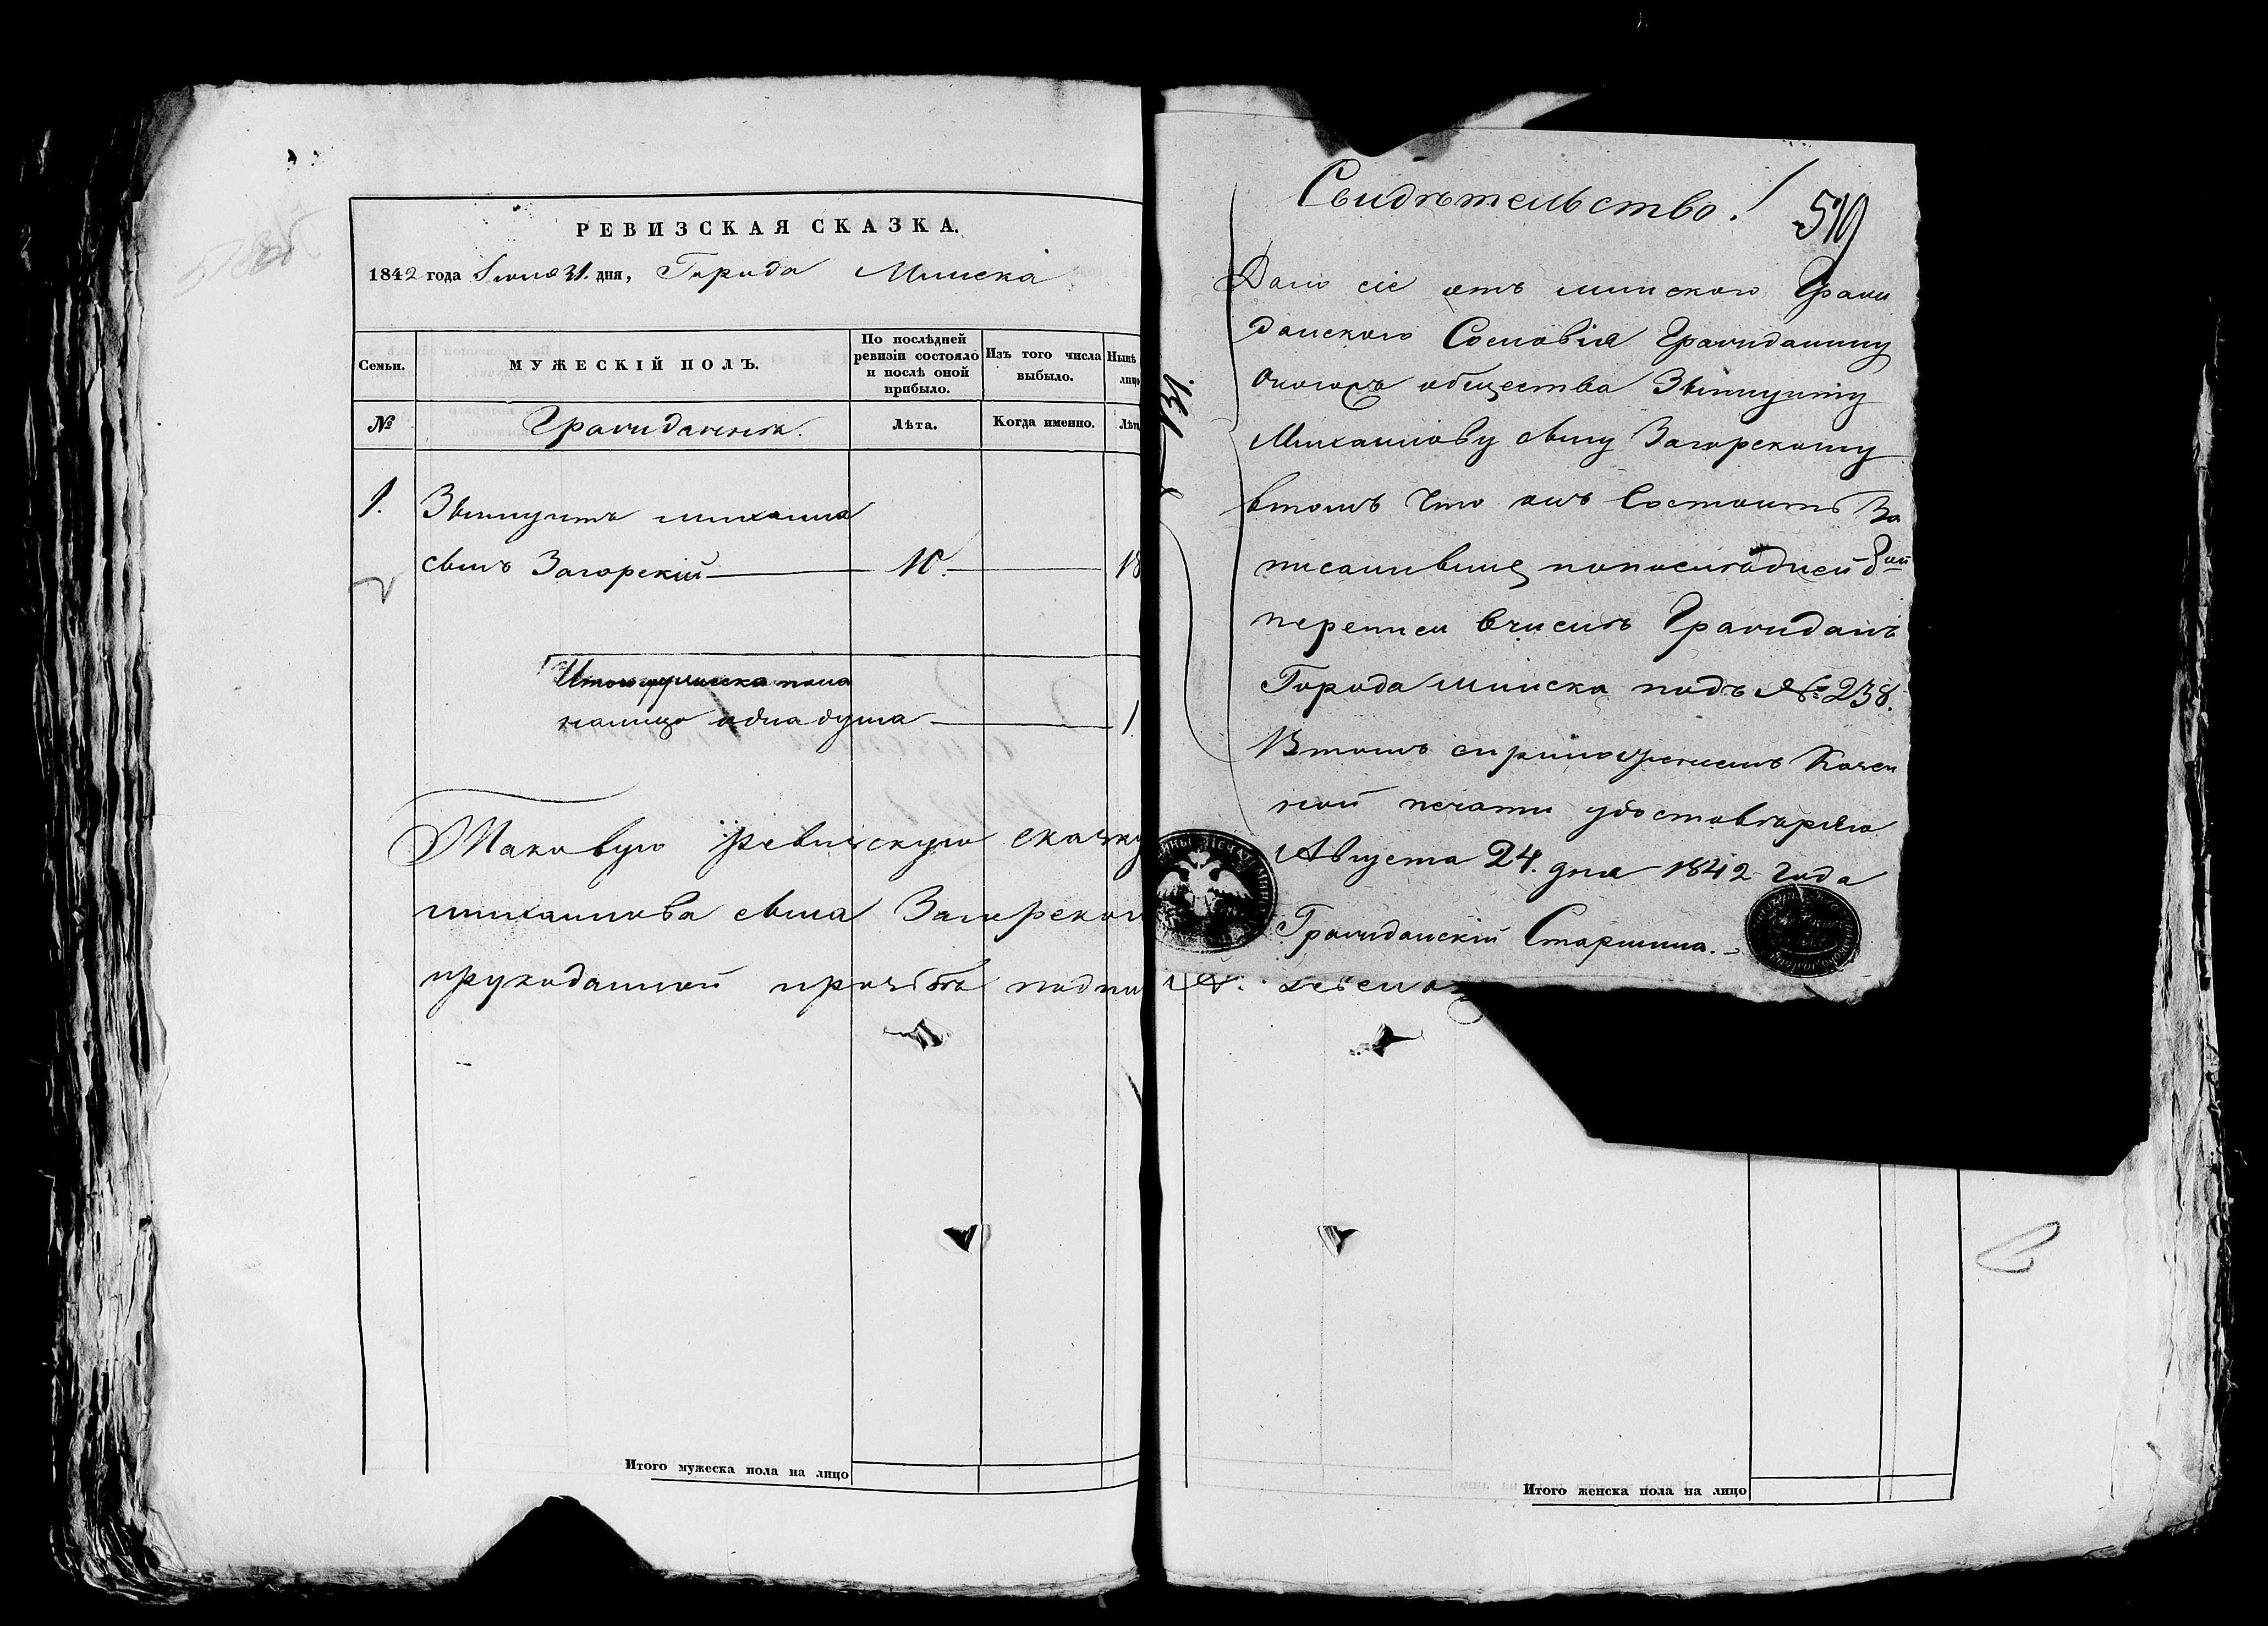 РЕВИЗСКАЯ СКАЗКА.
1842 года Іюля 31. дня, Города Минска
Семьи.
МУЖЕСКІЙ ПОЛЪ.
По послѣдней ревизіи состояло и послѣ оной прибыло.
Изъ того числа выбыло.
Нынѣ лицо
№
Гражданинъ.
Лѣта.
Когда именно.
Лѣт
1.
Викгунтъ михаила
сынъ Загорскій 10. 18
Итого мужеска пола
налицо одна душа 1
Таковую ревизскую сказку
михаилова сына Загорског
прукоданной прозбѣ подпи
Итого мужеска пола на лицо
Свидѣтельство.
519
Дано сіе отъ минского Гражи
данского Сословія Гражиданину
оногожъ общества
Михаилову сыну Загорскому
втомъ Что онъ Состоитъ За
писаннымъ попослѣдней 8ой
переписи вчислѣ Гражиданъ
Города минска подъ № 238.
Втомъ сприложеніемъ Казен
ной печати удостовѣряю
Августа 24. дня 1842 года
Гражиданскій Старшина.
131.
Итого женска пола на лицо